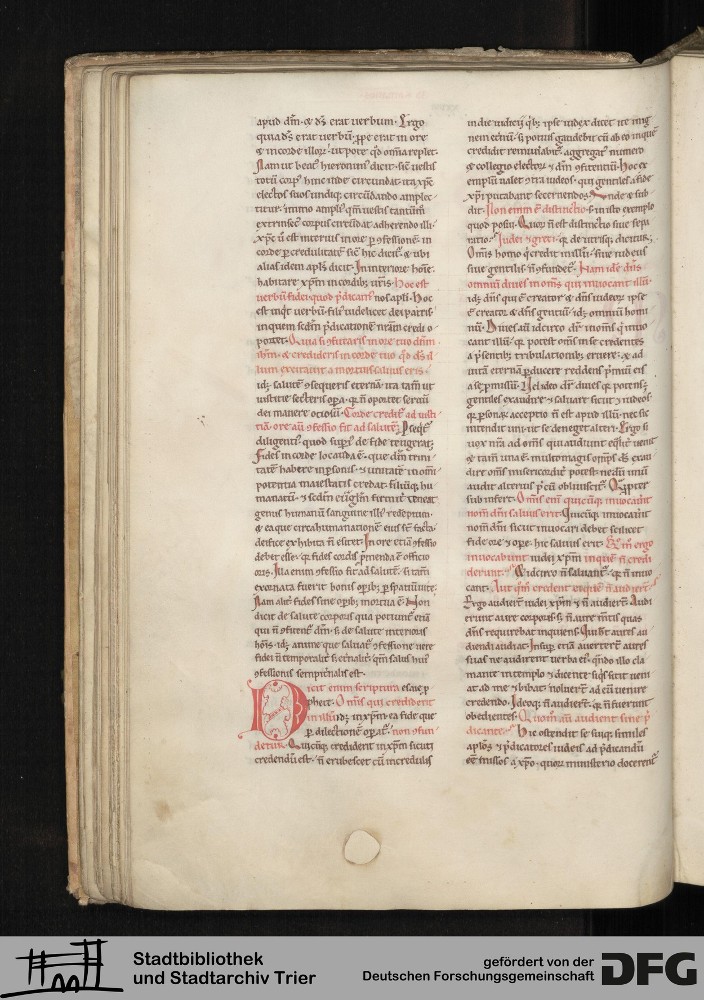 apud dm̄. & ds̄ erat uerbum. Ergo
quia ds̄ erat uerbū. ꝓpe erat in ore
& in corde illoꝝ. utpote qd̓ om̄ia replet.
Nam ut beat᷒ hieronim᷒ dicit. sic̄ uestis
totū corp᷒ hinc inde circundat. ita xp̄c
electos suos undiq; circūdando amplec
titur. immo ampli᷒ qm̄ uestis tantūm
extrinsec᷒ corpus circūdat adherendo illi.
xp̄c ū est interius in ore ꝑ ɔfessionē. in
corde ꝑ credulitatē sic̄ hic dic̄. & ubi
alias idem apl̄s dicit. In interiore hoīe.
habitare xp̄m in cordib; ur̄is. Hoc est
uerbū fidei quod p̄dicam᷒ nos apl̄i. Hoc
est inqt̓ uerbū. fili᷒ uidelicet dei patris
inquem scdm̄ p̄dicationē nr̄am credi o
portet. Quia si ɔfitearis in ore tuo dn̄m
ih̄m. & credideris in corde tuo qd̓ ds̄ il
lum excitauit a mortuis saluus eris.
id; salutē ɔsequeris eternā. ita tam̄ ut
iustitie secteris op̄a. qꝛ n̄ oportet seruū
dei manere ociosū. Corde credit᷒ ad iusti
tiā. ore aū ɔfessio fit ad salutē;
diligenti᷒ quod sup᷒ de fide tetigerat;
Fides in corde locanda ē. que dm̄ trini
tatē habere in ꝑsonis. & unitatē in om̄i
potentia maiestatis credat. filiūq; hu
manatū. & scdm̄ eūgl̄m firmit᷒ teneat
genus humanū sanguine illi᷒ redemptum.
& ea que circa humanationē eius st̄ facta.
deifice exhibita n̄ esitet. In ore etiā ɔfessio
debet esse. qꝛ fides cordis p̄menda ē officio
oris. Illa enim ɔfessio fit ad salutē. si tam̄
exornata fuerit bonis op̄ib; ꝑ spatiū uite.
Nam alit̓ fides sine op̄ib; mortua ē. Non
dicit de salute corporis qua potiunt᷒ etiā
qui n̄ ɔfitent᷒ dm̄. s; de salute interioris
hois. id; anime que saluat᷒ ɔfessione uere
fidei n̄ temporalit̓ s; et̓nalit̓. qm̄ salus hui᷒
ɔfessionis sempit̓nalis est.
Dicit enim scriptura esaye ꝓ
phete. Omīs qui crediderit
in illū. id; in xp̄m. ea fide que
ꝑ dilectionē opat᷒. non ɔfun
detur. Quicūq; crediderit in xp̄m sicuti
credendū est. n̄ erubescet cū incredulis
in die iudicij qn̄ ipse iudex dicet ite
nem et̓nū. s; potius gaudebit cū ab eo
credidit remunabit᷒. aggregat᷒ numero
& collegio electoꝝ & dm̄ ɔfitentiū. Hoc ex
emplū ualet ɔtra iudeos. qui gentiles a fide
xp̄i putabant secernendos. Unde & sub
dit. Non enim ē distinctio. s; in isto exemplo
quod posui. Quoꝝ n̄ est distinctio siue sepa
ratio. Iudei & greci. qꝛ de utrisq; dicit᷒.
Om̄s homo q̓ credit in illū. siue iudeus
siue gentilis n̄ ɔfundet᷒. Nam idē dn̄s
omniū diues in om̄s qui inuocant illū.
id; dn̄s qui ē creator & dn̄s iudeoꝝ ipse
ē creator & dn̄s gentiū. id; omniū homi
nū. Diues aū idcirco dr̄ in om̄s q̓ inuo
cant illū. qꝛ potest om̄s in se credentes
a p̄sentib; tribulationib; eruere. & ad
uitā eternā ꝓducere reddens p̄miū eis
a se ꝓmissū. Vel ideo dr̄ diues qꝛ potens;
gentiles exaudire & saluare sicut & iudeos
qꝛ ꝑsonaꝝ acceptio n̄ est apud illū. nec sic
intendit uni. ut se deneget alteri. Ergo si
uox nr̄a ad om̄s qui audiunt eqlit̓ uenit
& tam̄ una ē. multo magis om̄ps ds̄ exau
dire om̄s misericordit̓ potest. nedū unū
audit alterius p̄cū obliuiscit᷒. Qua ꝓpter
sub infert. Omīs enī quicūq; inuocauit
nom̄ dn̄i saluus erit. Quicūq; inuocauit
nom̄ dn̄i sicut inuocari debet scilicet
fide ore & oꝑe. hic saluus erit. Qm̄ ergo
inuocabunt iudei xp̄m in quē n̄ credi
derunt. & idcirco n̄ saluant᷒. qꝛ n̄ inuo
cant. Aut qm̄ credent ei quē n̄ audiert̄.
Ergo audiert̄ iudei xp̄m & n̄ audiert̄. Audi
erunt aure corporis. s; n̄ aure m̄tis quas
dn̄s requirebat inquiens. Qui h̄t aures au
diendi audiat. Insup̄ etiā auerterī aures
suas ne audirent uerba ei᷒. qn̄do illo cla
mante in templo & dicente. siqs̓ sitit ueni
at ad me & bibat. noluert̄ ad eū uenire
credendo. Ideoq; n̄ audiert̄. qꝛ n̄ fuerunt
obedientes. Quom̄ aū audient sine p̄
dicante. Hic ostendit se suiq; similes
aplōs & p̄dicatores iudeis ad p̄dicandū
eē missos a xp̄o. quoꝝ ministerio docerent᷒
Stadtbibliothek
und Stadtarchiv Trier
gefördert von der
Deutschen Forschungsgemeinschaft
DFG